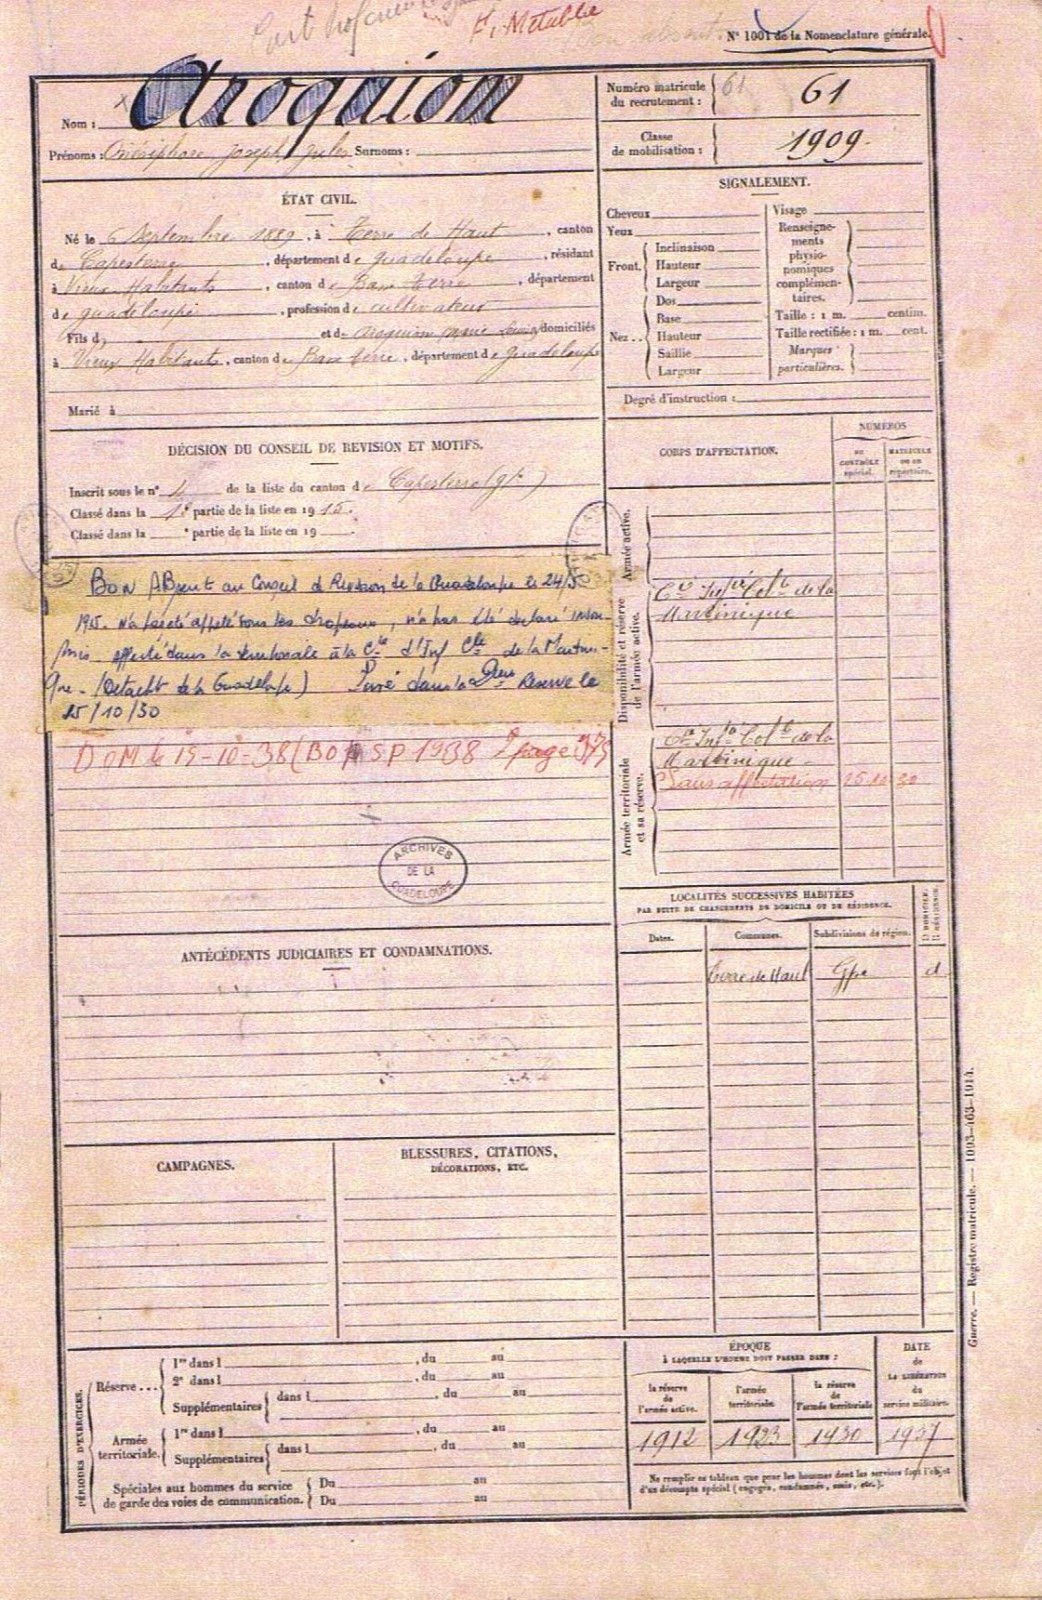 F. Metablie
N° 1001 de la Nomenclature générale.
Nom : Aroquiom
Prénoms : Joseph Jules Surnoms :
Numéro matricule du recrutement : 61 61
Classe de mobilisation : 1909.
ÉTAT CIVIL.
Né le 6 Septembre 1889, à Terre de Haut, canton
de Capesterre, département de guadeloupe, résidant
à Vieux Habitants, canton de Basse terre, département
de guadeloupe, profession de cultivateur
Fils d et de aroquiom domiciliés
à Vieux Habitants, canton de Basse terre, département de guadeloupe
Marié à
SIGNALEMENT.
Cheveux
Yeux
Front. Inclinaison
Hauteur
Largeur
Nez .. Dos
Base
Hauteur
Saillie
Largeur
Visage
Renseigne-
ments
physio-
nomiques
complémen-
taires.
Taille : 1 m. centim.
Taille rectifiée : 1 m. cent.
Marques
particulières.
Degré d'instruction :
DÉCISION DU CONSEIL DE REVISION ET MOTIFS.
Inscrit sous le n° 4 de la liste du canton de Capesterre (gpe)
Classé dans la 1e partie de la liste en 1915.
Classé dans la e partie de la liste en 19 .
Bon ABsent au Conseil de Revision de la Guadeloupe le 24/5
1915. N'a pas été appelé sous les drapeaux, n'a pas été déclaré insou-
mis. affecté dans la territoriale à la Cie d'Inf Cle de la Martini-
que - (Détacht de la Guadeloupe) Passé dans la Reserve le
15/10/30
DOM le 15-10-38 (BO SP 1938 page 375
ARCHIVES
DE LA
GUADELOUPE
CORPS D'AFFECTATION.
NUMÉROS
AU CONTRÔLE spécial.
MATRICULE OU AU répertoire.
Armée active.
Disponibilité et réserve de l'armée active.
Cie Infie Colle de la
Martinique
Armée territoriale et sa réserve.
Cie Infie Colle de la
Martinique -
Sans affectation 15 10 30
LOCALITÉS SUCCESSIVES HABITÉES
PAR SUITE DE CHANGEMENTS DE DOMICILE OU DE RÉSIDENCE.
Dates. Communes. Subdivisions de région. D. DOMICILE. R. RÉSIDENCE.
Terre de Haut Gpe d
ANTÉCÉDENTS JUDICIAIRES ET CONDAMNATIONS.
CAMPAGNES.
BLESSURES, CITATIONS,
DÉCORATIONS, ETC.
PÉRIODES D'EXERCICES.
Réserve ... 1re dans l , du au
2e dans l , du au
Supplémentaires dans l , du au
Armée territoriale. 1re dans l , du au
Supplémentaires dans l , du au
Spéciales aux hommes du service
de garde des voies de communication. Du au
Du au
ÉPOQUE
À LAQUELLE L'HOMME DOIT PASSER DANS :
la réserve de l'armée active.
l'armée territoriale.
la réserve de l'armée territoriale
DATE de LA LIBÉRATION du service militaire.
1912 1923 1930 1937
Ne remplir ce tableau que pour les hommes dont les services font l'objet
d'un décompte spécial (engagés, condamnés, omis, etc.).
Guerre. — Registre matricule. — 1093-463-1914.